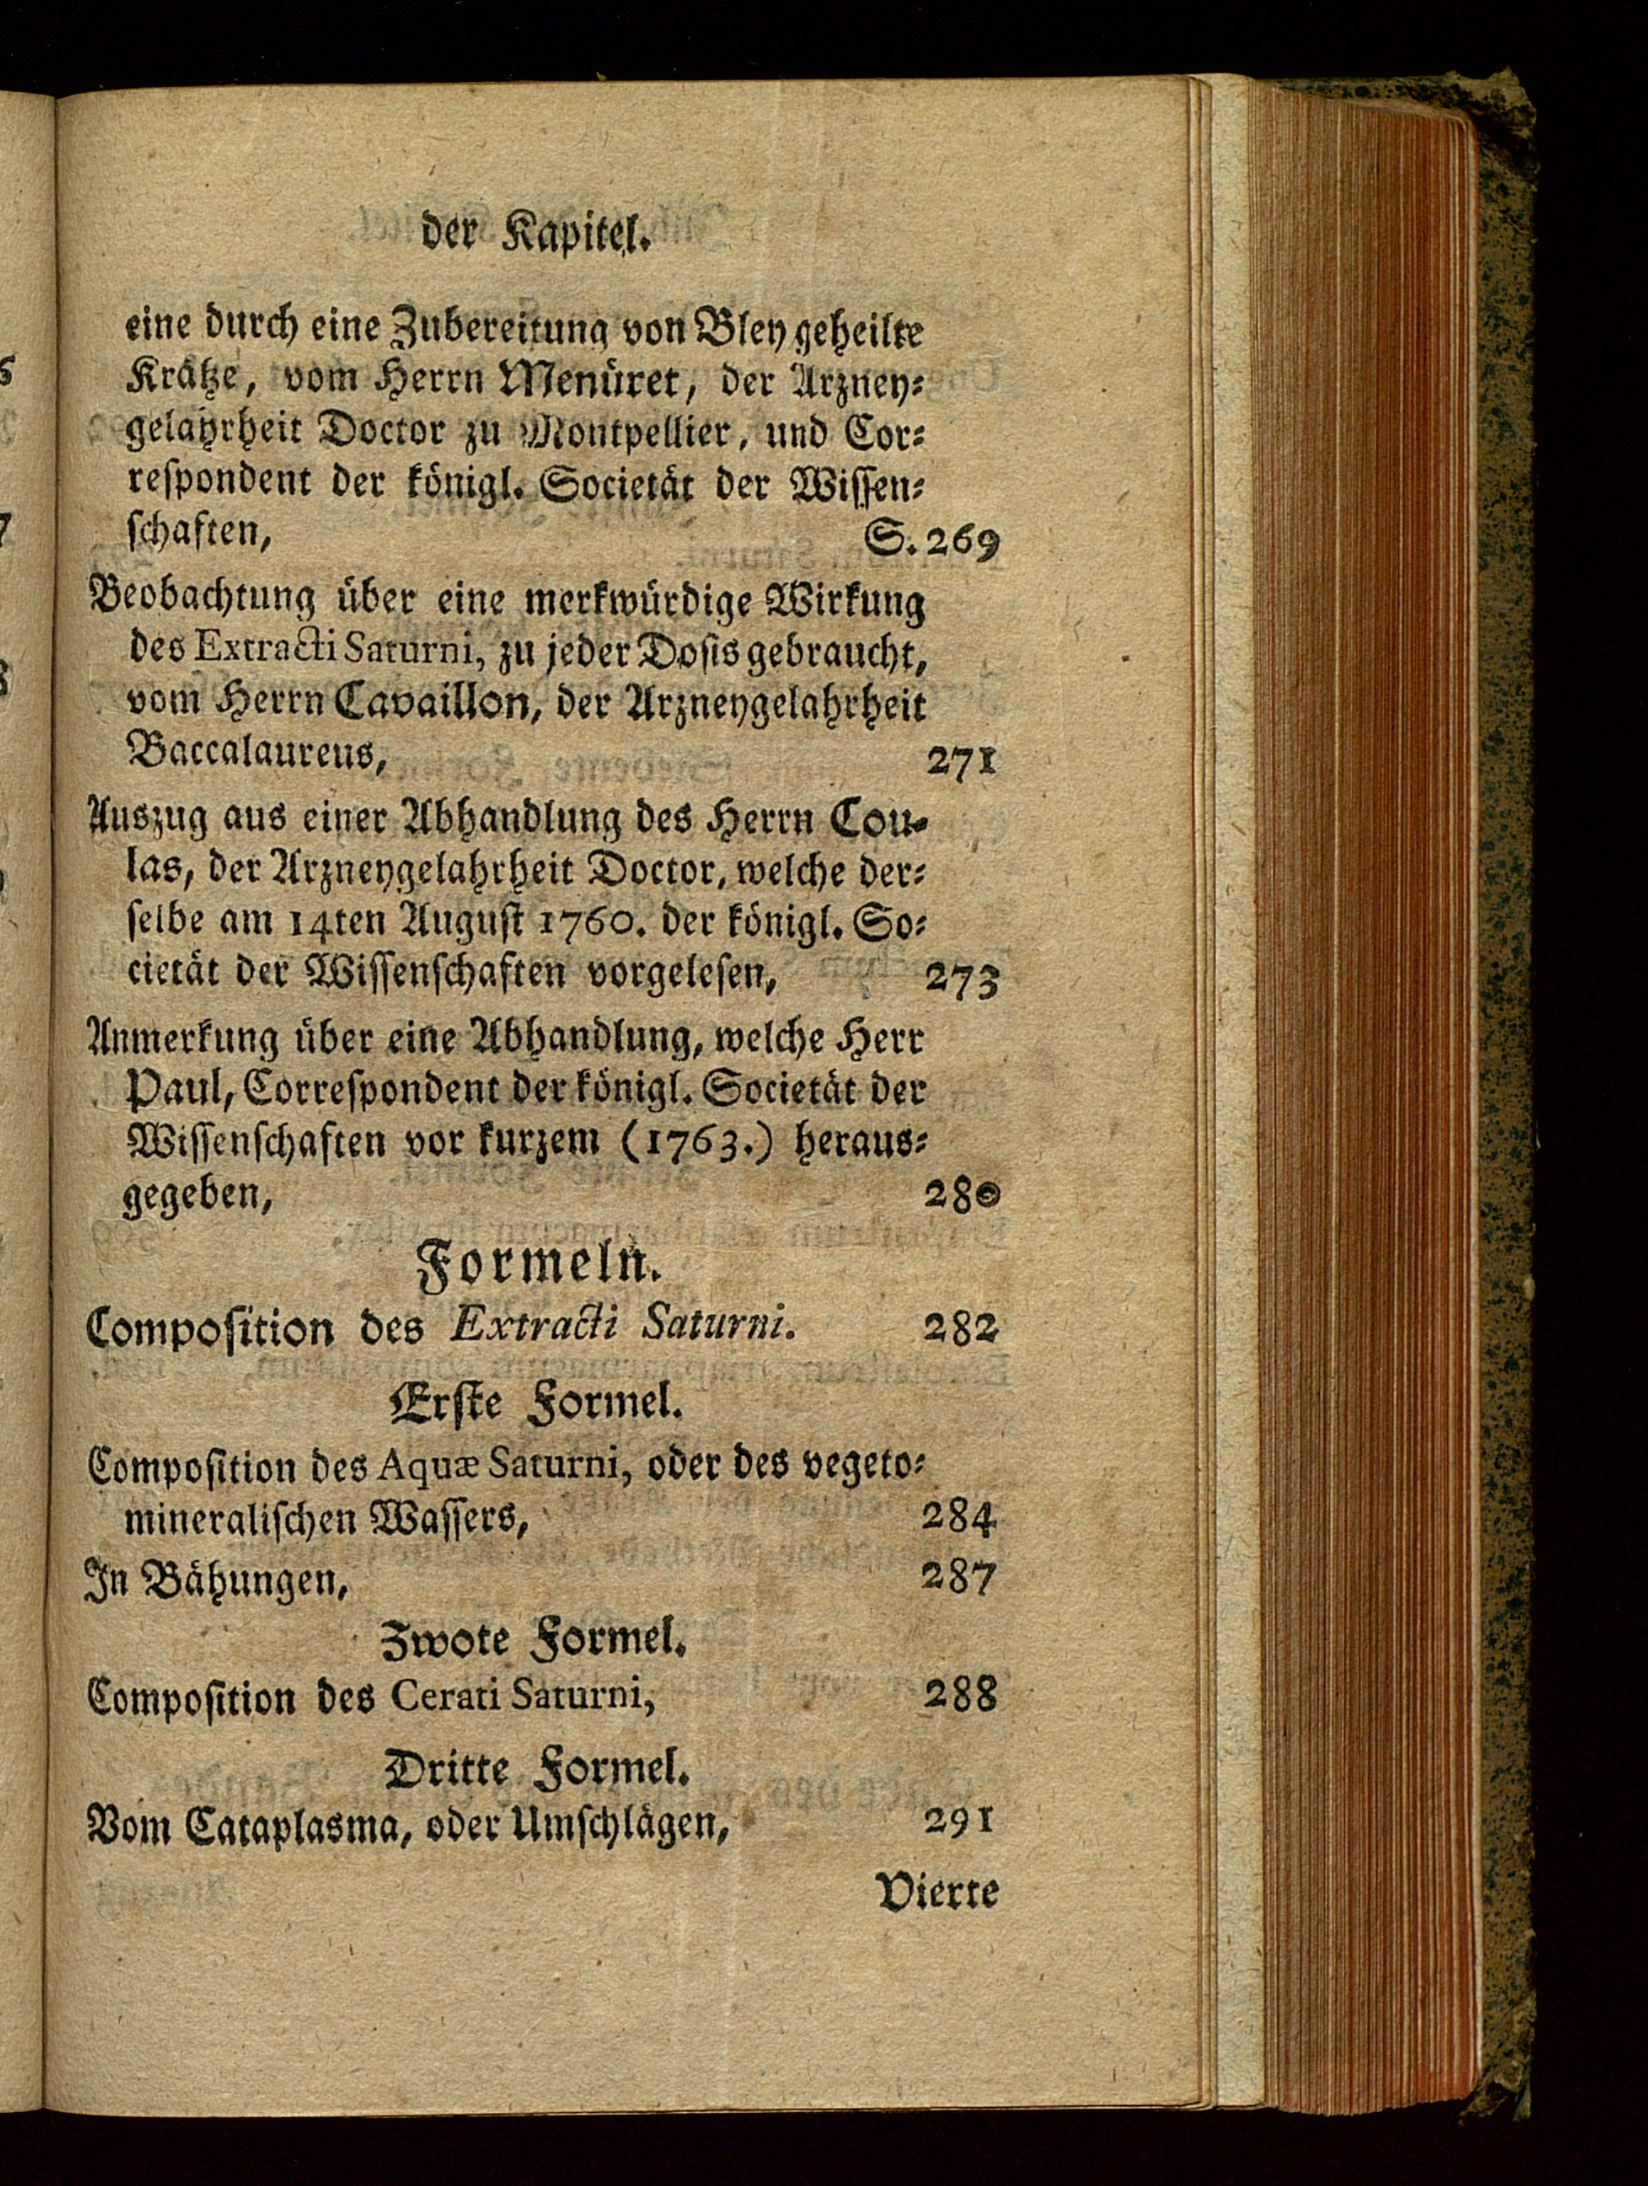 der Kapitel.
eine durch eine Zubereitung von Bley geheilte
Krätze, vom Herrn Menüret, der Arzney-
gelahrheit Doctor zu Montpellier, und Cor-
respondent der königl. Societät der Wissen-
schaften, S. 269
Beobachtung über eine merkwürdige Wirkung
des Extracti Saturni, zu jeder Dosis gebraucht,
vom Herrn Cavaillon, der Arzneygelahrheit
Baccalaureus, 271
Auszug aus einer Abhandlung des Herrn Cou-
las, der Arzneygelahrheit Doctor, welche der-
selbe am 14ten August 1760. der königl. So-
cietät der Wissenschaften vorgelesen, 273
Anmerkung über eine Abhandlung, welche Herr
Paul, Correspondent der königl. Societät der
Wissenschaften vor kurzem (1763.) heraus-
gegeben, 280
Formeln.
Composition des Extracti Saturni. 282
Erste Formel.
Composition des Aquæ Saturni, oder des vegeto-
mineralischen Wassers, 284
In Bähungen, 287
Zwote Formel.
Composition des Cerati Saturni, 288
Dritte Formel.
Vom Cataplasma, oder Umschlägen, 291
Vierte